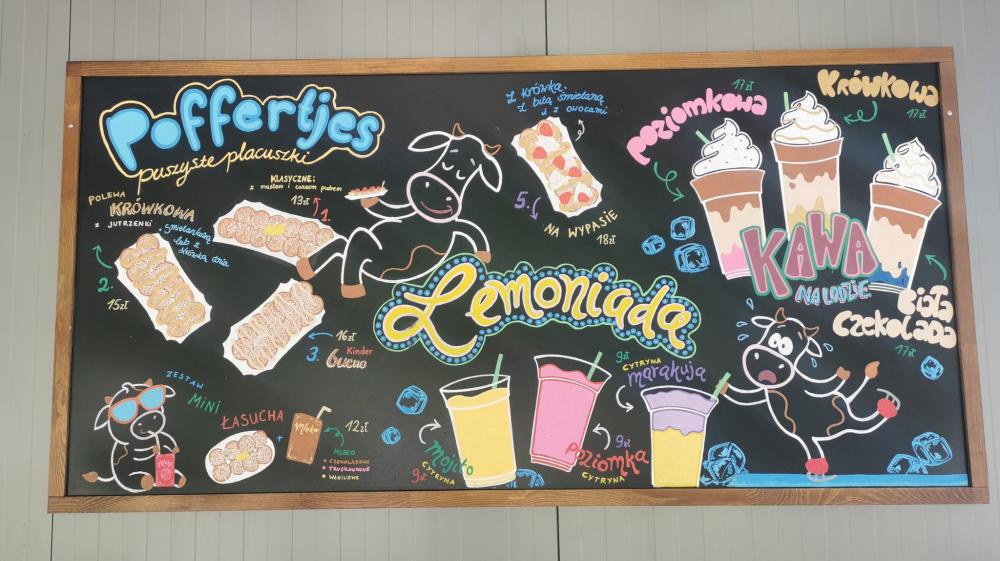 Poffertjes
puszyste placuszki
KLASYCZNE:
z masłem i cukrem pudrem
13zł
1.
POLEWA
KRÓWKOWA
z JUTRZENKI
+ śmietankową
lub z
skórką dnia
2.
15zł
16zł
3. Kinder
bueno
Z krówką,
z bitą śmietaną
i z owocami
5.
NA WYPASIE
18zł
ZESTAW
MINI
ŁASUCHA
+
Mleko
12zł
MLEKO
• CZEKOLADOWE
• TRUSKAWKOWE
• WANILIOWE
Lemoniada
Mojito
CYTRYNA
9zł
9zł
Poziomka
CYTRYNA
9zł
CYTRYNA
marakuja
17zł
poziomkowa
KróWKOWa
17zł
KAWA
NA LODZIE
Biała
Czekolada
17zł